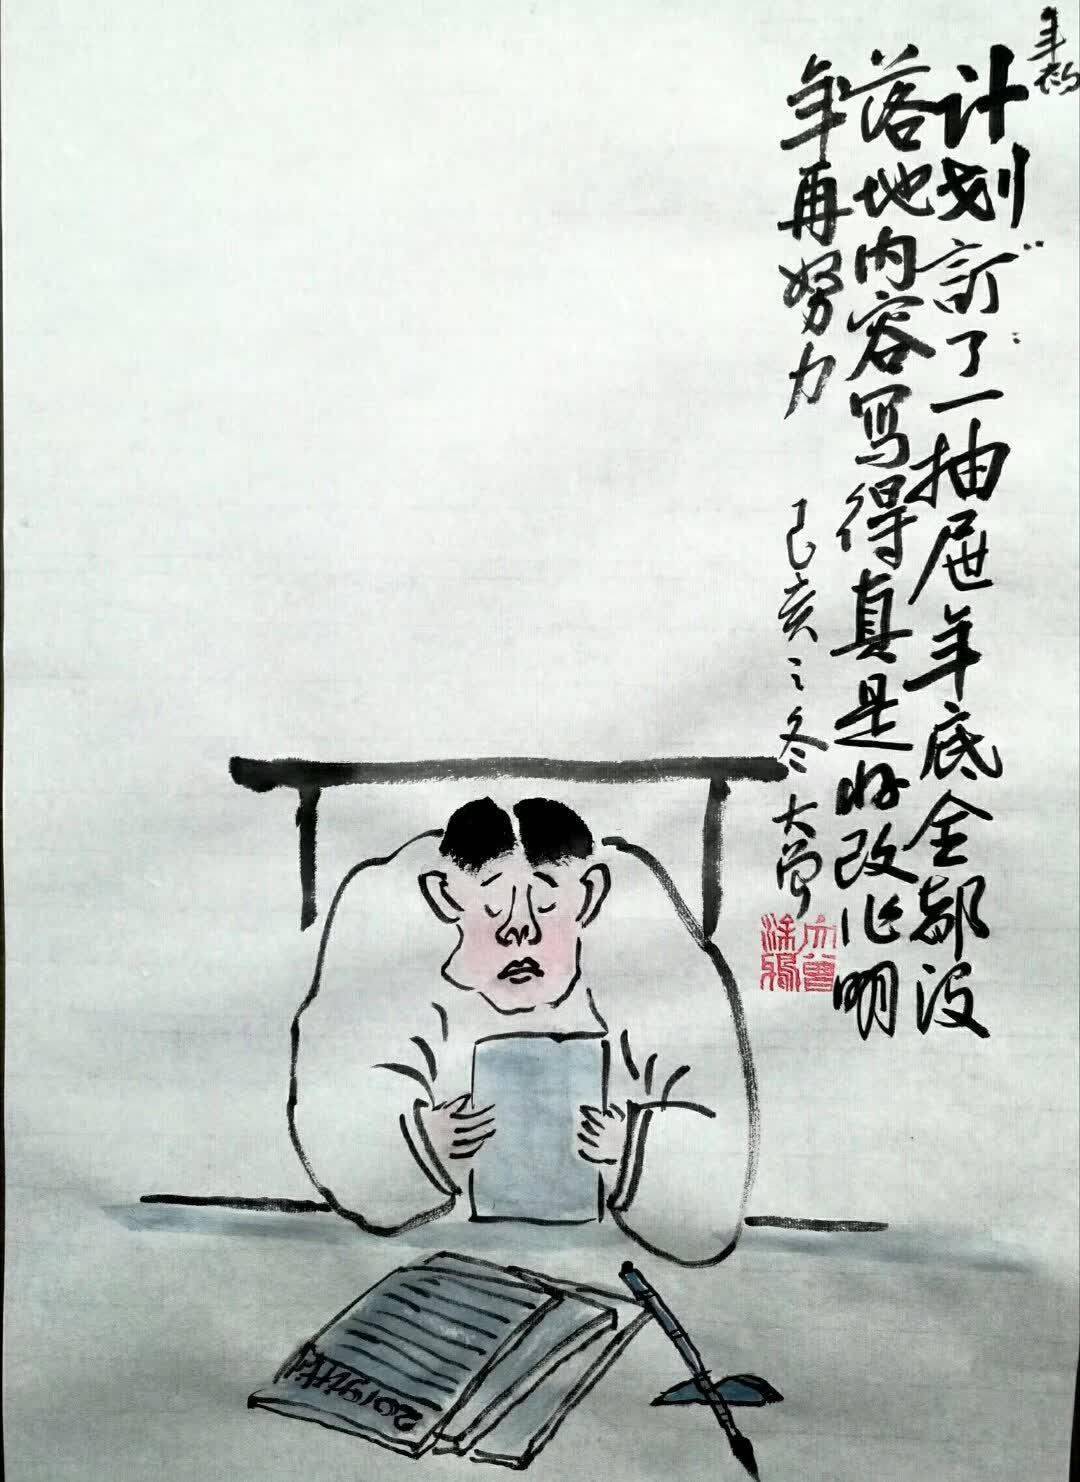 年初
计划訂了一抽屉年底全部没
落地内容写得真是好改作明
年再努力
己亥之冬 大曾
大曾
涂鸦
2019计划